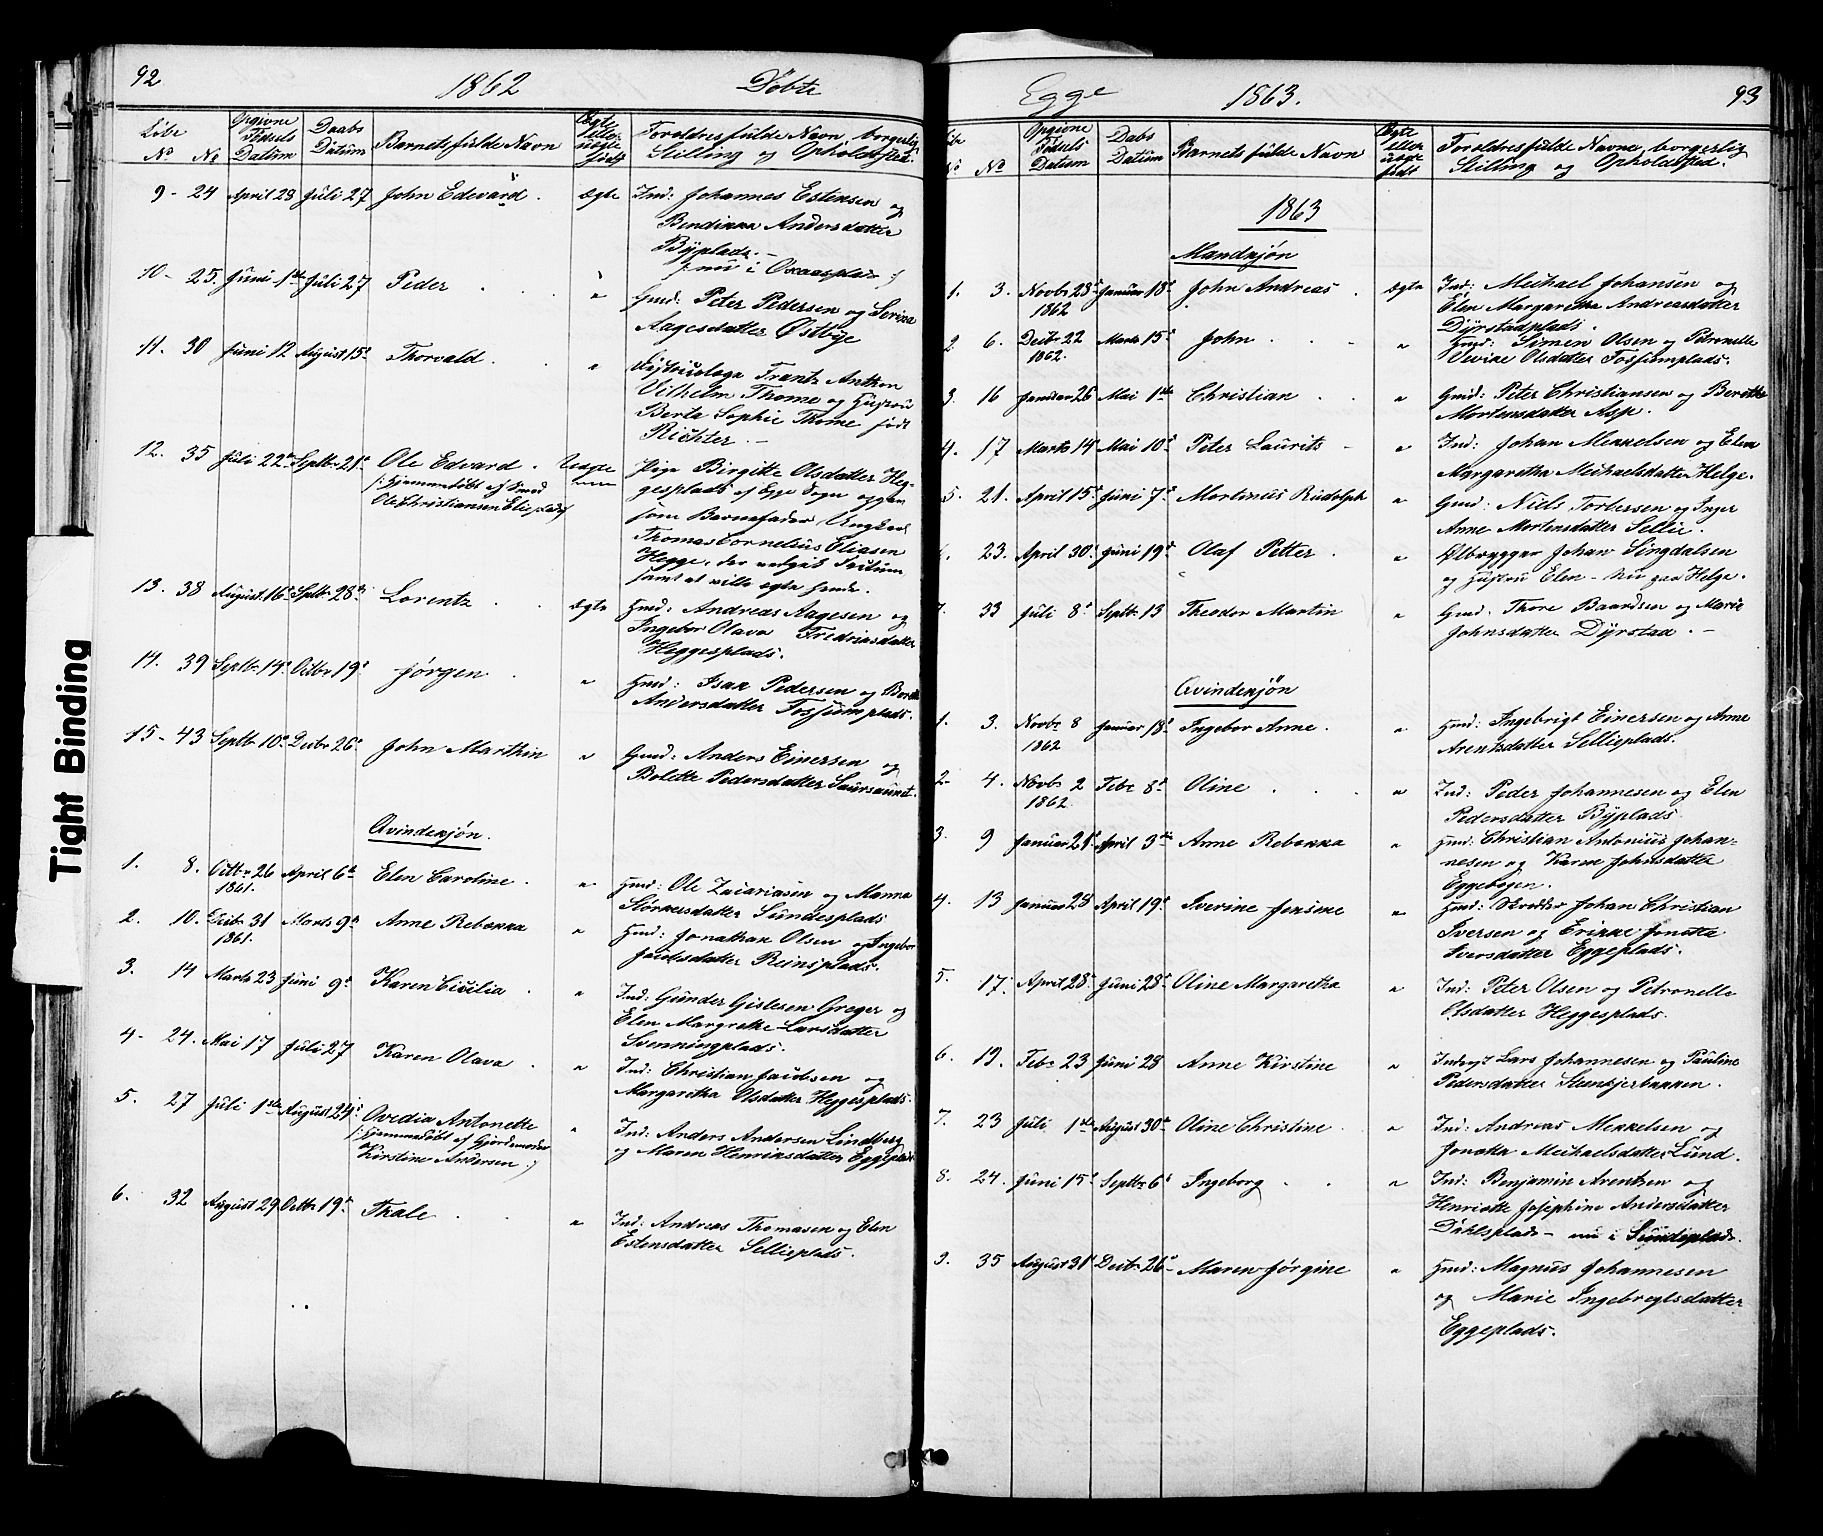 92
1862
Døbte
Libr No
No
Opgivne Fødsels Datum
Daabs Datum
Barnets fulde Navn
Ægte eller uægte født
Forældres fulde Navn, borgerlig Stilling og Opholdssted.
9 - 24 April 29 Juli 27 John Edevard. Ægte Ind: Johannes Estensen og
Bendikka Andersdatter
Byplads. -
10 - 25. Juni 1ste Juli 27 Peder . . . " Gmd: Peter Pedersen og Serina
Aagesdatter Østbye
11. 30 Juni 12 August 15d Thorvald. " Frantz Anthon
Vilhelm Thome og Hustrou
Berte Sophie Thome født
Richter. -
12. 35 Juli 22d Septbr 21d Ole Edvard. Uægte Pige Birgitte Olsdatter Heg-
/: Hjemmedøbt af Smed gesplads af Egge Sogn opgav
Ole Christiansen Elieplads :/ som Barnefader Ungkarl
Thomas Cornelius Eliasen
Hegge, der
samt at ville ægte hende.
13. 38 August 16d Septbr 28de Lorentz . . Ægte Hmd: Andreas Aagesen og
Ingebor Olava Fredriksdatter
Heggesplads.
14. 39 Septbr 14d Octbr 19d Jørgen . " Hmd: Isak Pedersen og Berit
Andersdatter Fossumplads.
15 - 43 Septbr 10d Decbr 26d John Marthin " Gmd: Anders Einersen og
Bolette Pedersdatter Saursaunet.
Qvindekjøn.
1. 8. Octbr 26 1861. April 6te Elen Caroline. " Hmd: Ole Zacariasen og Manna
Størkersdatter Sundesplads
2. 10. Decbr 31 1861. Marts 9d Anne Rebekka " Hmd: Jonathan Olsen og Ingebor
Jacobsdatter Reinsplads.
3. 14 Marts 23 Juni 9d Karen Cicilia . " Ind: Gunder Gislesen Greger og
Elen Margrethe Larsdatter
Svenningplads.
4 - 24. Mai 17 Juli 27 Karen Olava . " Ind: Christian Jacobsen og
Margaretha Olsdatter Heggesplads.
5. 27 Juli 1ste August 24d Ovedia Antonette " Ind: Anders Andersen Lindberg
/: Hjemmedøbt af Gjordemoder og Maren Henriksdatter Eggeplads
Kirstine Andersen :/
6. 32 August 29 Octbr 19d Thale . . " Ind: Andreas Thomasen og Elen
Estensdatter Sellieplads.
Egge
1863.
93
Libr No
No
Opgivne Fødsels Datum
Dabs Datum
Barnets fulde Navn
Ægte eller uægte født
Forældres fulde Navne, borgerlig Stilling og Opholdssted.
1863
Mandkjøn
1. 3. Novbr 28d 1862 Januar 18d John Andreas . Ægte Ind: Michael Johansen og
Elen Margaretha Andreasdatter
Dyrstadplads.
2. 6. Decbr 22 1862. Marts 15d John . . . " Hmd: Simen Olsen og Petronelle
Olsdatter Fossumplads.
3. 16 Januar 26 Mai 1ste Christian . . " Gmd: Peter Christiansen og Berith
Mortensdatter Asp.
4. 17 Marts 14 Mai 10d Peter Laurits - " Ind: Johan Mekkelsen og Elen
Margaretha Michaelsdatter Helge.
5. 21. April 15d Juni 7d Martinus Rudolph " Gmd: Niels Torbersen og Inger
Anne Mortensdatter Sellie.
23. April 30d Juni 19d Olaf Petter . " Ølbrygger Johan Singdalsen
og Hustrou Elen - nu paa Helge.
7. 33 Juli 8d Septbr 13 Theodor Martin " Gmd. Thore Baardsen og Marie
Johnsdatter Dyrstad. -
Qvindekjøn
1. 3. Novbr 8 1862 Januar 18d Ingebor Anne. " Hmd: Ingebrigt Einersen og Anne
Arentsdatter Sellieplads.
2 - 4. Novbr 2 1862. Febr 8d Oline . . . " Ind: Peder Johannesen og Elen
Pedersdatter Byplads.
3. 9 Januar 21d April 3die Anne Rebekka " Hmd: Christian Antonius Johan-
nesen og Karen Johnsdatter
Eggebogen.
4. 13 Januar 28 April 19d Iverine Jensine " Hmd: Skredder Johan Christian
Iversen og Erikke Jonetta
Iversdatter Eggeplads.
5. 17. April 28d Juni 28d Oline Margaretha " Ind: Peter Olsen og Petronelle
Olsdatter Heggesplads.
6. 19. Febr 23 Juni 28 Anne Kirstine " Lars Johannesen og Pauline
Pedersdatter Steenkjerbakken.
7. 23 Juli 1ste August 30d Oline Christine. " Ind: Andreas Mekkelsen og
Jonetta Michaelsdatter Lund.
8. 24. Juni 15d Septbr 6d Ingeborg . . " Ind: Benjamin Arentsen og
Henriette Josephine Andersdatter
Dahlsplads - nu i Sundsplads.
9. 35 August 31d Decbr 26d Maren Jørgine " Hmd: Magnus Johannesen
og Marie Ingebregtsdatter
Eggeplads.
Tight Binding